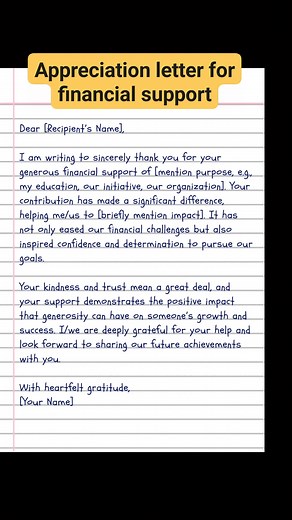 Appreciation letter for
financial support
Dear [Recipient's Name],
I am writing to sincerely thank you for your
generous financial support of [mention purpose, e.g.,
my education, our initiative, our organization]. Your
contribution has made a significant difference,
helping me/us to [briefly mention impact]. It has
not only eased our financial challenges but also
inspired confidence and determination to pursue our
goals.
Your kindness and trust mean a great deal, and
your support demonstrates the positive impact
that generosity can have on someone's growth and
success. I/we are deeply grateful for your help and
look forward to sharing our future achievements
with you.
With heartfelt gratitude,
[Your Name]